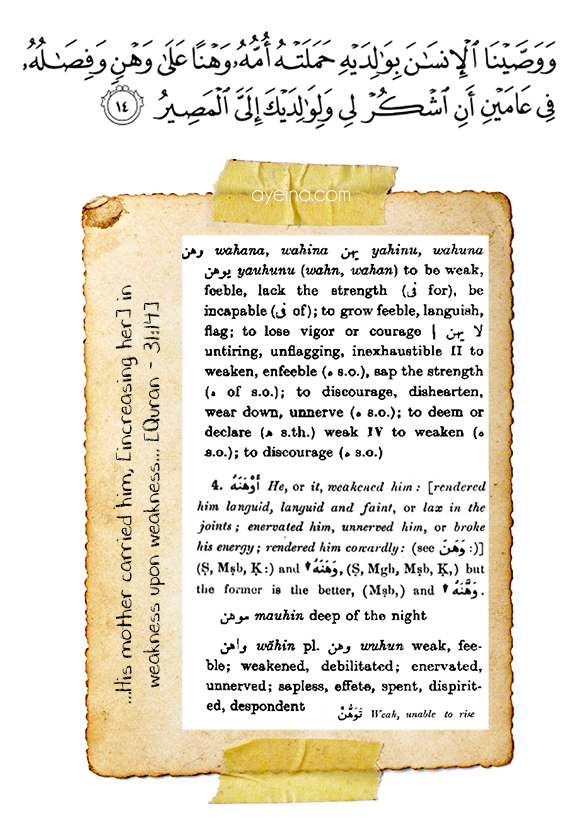 وَوَصَّيْنَا ٱلْإِنسَٰنَ بِوَٰلِدَيْهِ حَمَلَتْهُ أُمُّهُۥ وَهْنًا عَلَىٰ وَهْنٍ وَفِصَٰلُهُۥ
فِى عَامَيْنِ أَنِ ٱشْكُرْ لِى وَلِوَٰلِدَيْكَ إِلَىَّ ٱلْمَصِيرُ ١٤
ayeina.com
...His mother carried him, [increasing her] in
weakness upon weakness... [Quran - 31:14]
وهن wahana, wahina يهن yahinu, wahuna
يوهن yauhunu (wahn, wahan) to be weak,
feeble, lack the strength (فى for), be
incapable (فى of); to grow feeble, languish,
flag; to lose vigor or courage | لا يهن
untiring, unflagging, inexhaustible II to
weaken, enfeeble (ه s.o.), sap the strength
(ه of s.o.); to discourage, dishearten,
wear down, unnerve (ه s.o.); to deem or
declare (ه s.th.) weak IV to weaken (ه
s.o.); to discourage (ه s.o.)
4. أَوْهَنَهُ He, or it, weakened him: [rendered
him languid, languid and faint, or lax in the
joints; enervated him, unnerved him, or broke
his energy; rendered him cowardly: (see وَهَنَ :)]
(Ṣ, Mṣb, Ḳ:) and وَهَنَهُ, (Ṣ, Mgh, Mṣb, Ḳ,) but
the former is the better, (Mṣb,) and وَهَّنَهُ.
موهن mauhin deep of the night
واهن wāhin pl. وهن wuhun weak, fee-
ble; weakened, debilitated; enervated,
unnerved; sapless, effete, spent, dispirit-
ed, despondent
تَوَهُّنْ Weak, unable to rise